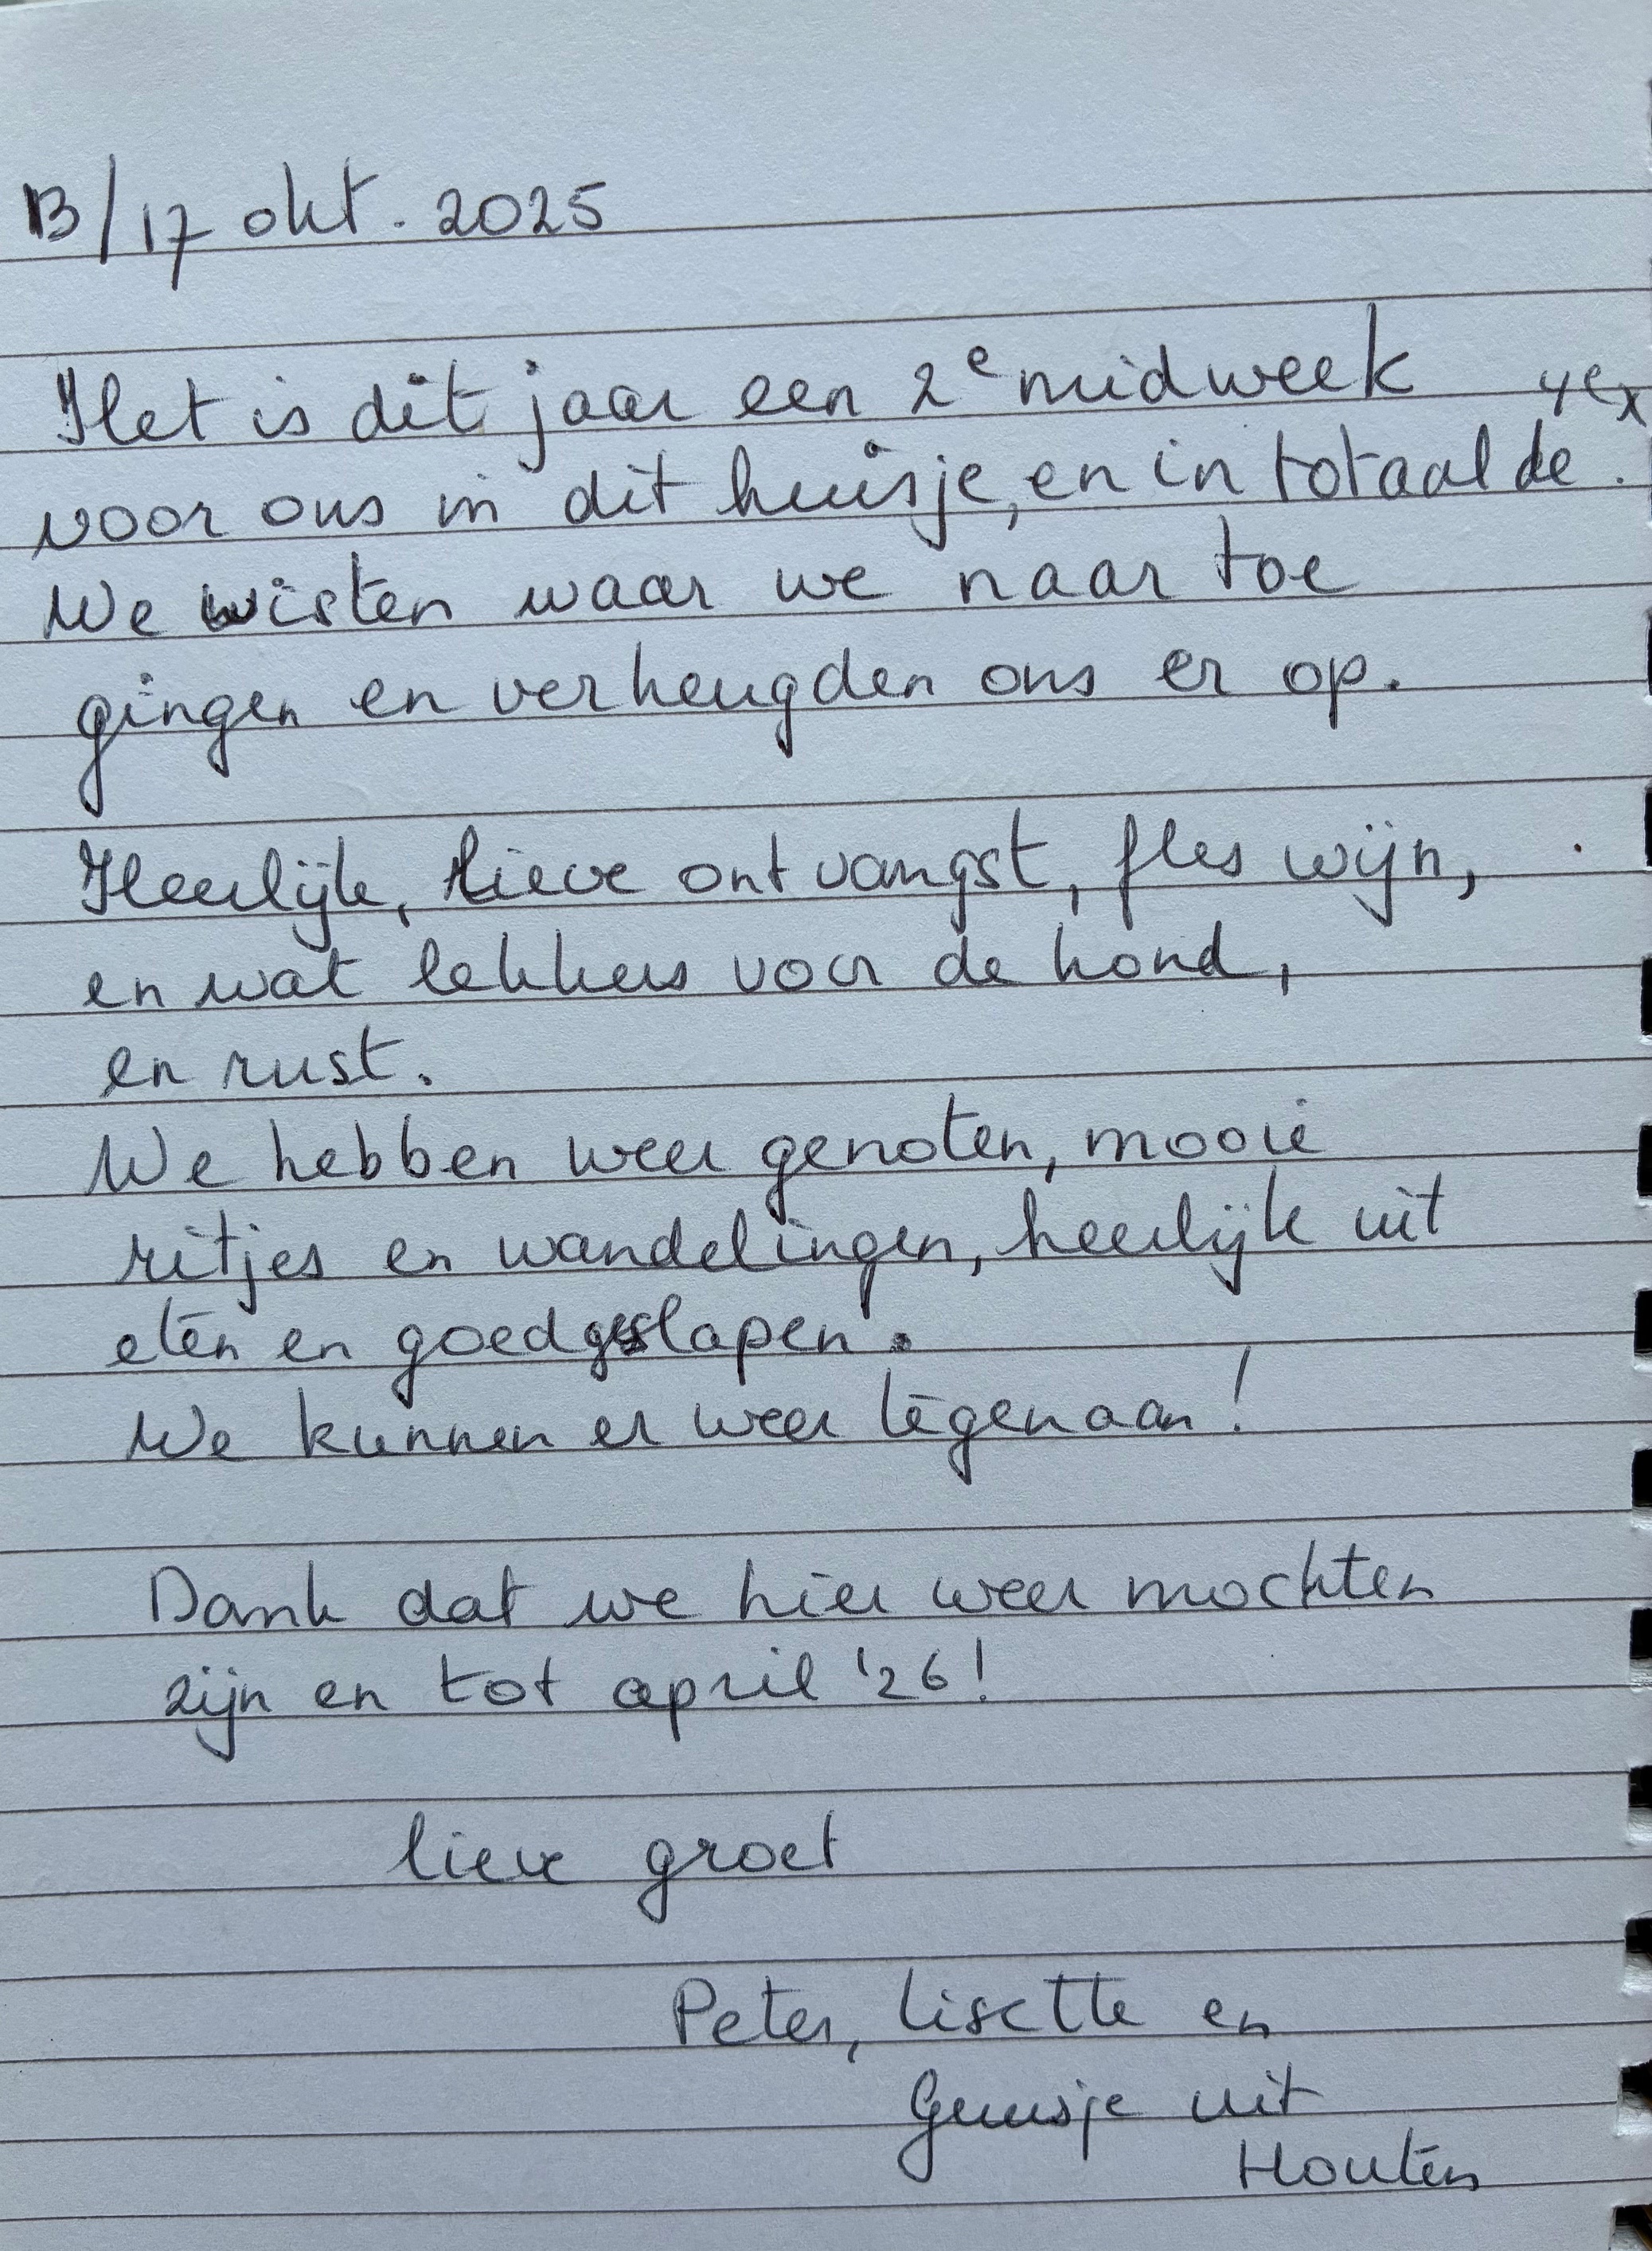 13/17 okt. 2025
Het is dit jaar een 2e midweek
voor ons in dit huisje, en in totaal de 4e x.
We wisten waar we naar toe
gingen en verheugden ons er op.
Heerlijk, lieve ontvangst, fles wijn,
en wat lekkers voor de hond,
en rust.
We hebben weer genoten, mooie
ritjes en wandelingen, heerlijk uit
eten en goed geslapen.
We kunnen er weer tegenaan!
Dank dat we hier weer mochten
zijn en tot april '26!
lieve groet
Peter, Lisette en
Guusje uit
Houten